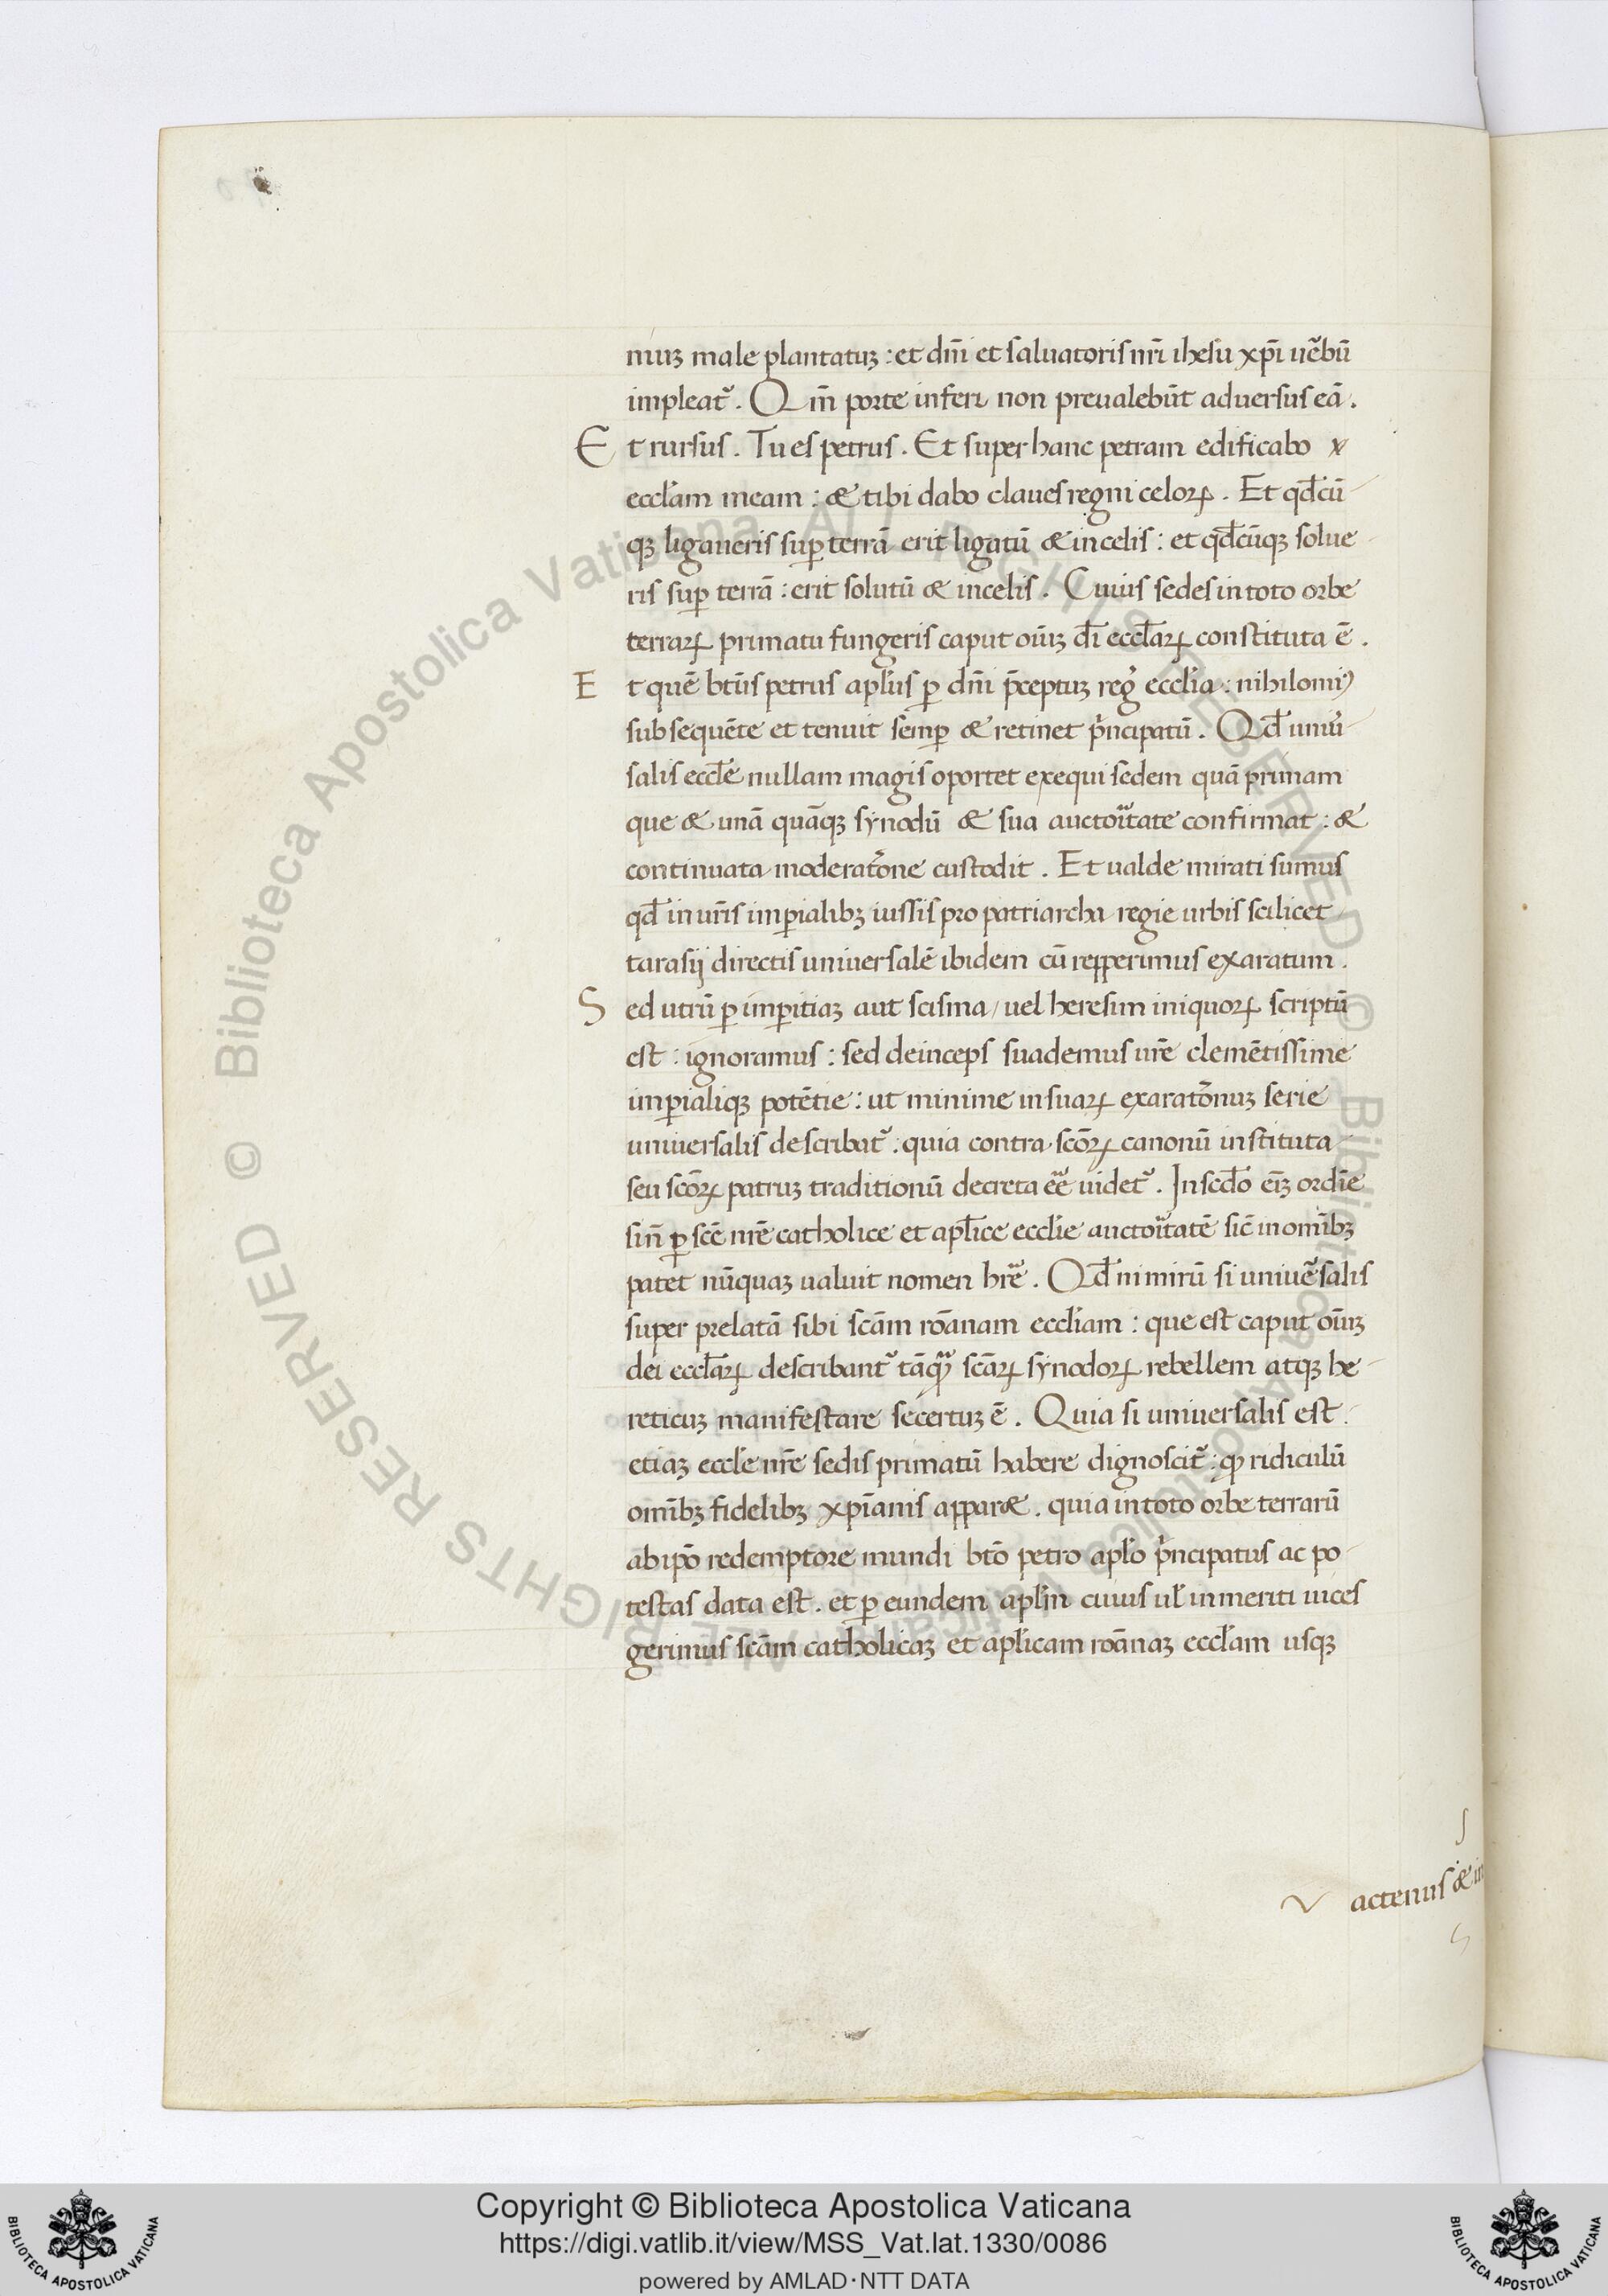 nuꝫ male plantatuꝫ : et dn̄i et saluatoris nr̄i ihesu xp̄i uēbū
impleat᷑ . Qm̄ porte inferi non preualebūt aduersus eā .
Et rursus . Tu es petrus . Et super hanc petram edificabo
eccl̄am meam : & tibi dabo claues regni celoꝝ . Et qd̄cū-
qꝫ ligaueris suꝑ terrā erit ligatū & in celis : et qd̄cūqꝫ solue-
ris suꝑ terrā : erit solutū & in celis . Cuius sedes in toto orbe
terraꝝ primatu fungeris caput oīuꝫ dī eccl̄aꝝ constituta ē .
Et quē btūs petrus apl̄us ꝑ dn̄i p̄ceptuꝫ reg̉ eccl̄ia : nihilomiꝰ
subsequēte et tenuit semꝑ & retinet pͥncipatū . Qd̄ uniu̓-
salis eccl̄e nullam magis oportet exequi sedem quā primam
que & unā quāqꝫ synodū & sua auctoritate confirmat : &
continuata moderatōne custodit . Et ualde mirati sumus
qd̄ in ur̄is imꝑialibꝫ iussis pro patriarcha regie urbis scilicet
tarasij directis uniuersalē ibidem cū repperimus exaratum .
Sed utrū ꝑ imꝑitiaꝫ aut scisma / uel heresim iniquoꝝ scriptū
est : ignoramus : sed deinceps suademus ur̄e clemētissime
imꝑialiqꝫ potētie : ut minime in suaꝝ exaratōnuꝫ serie
uniuersalis describat᷑ : quia contra scōꝝ canonū instituta
seu scōꝝ patruꝫ traditionū decreta eē uidet᷑ . In scd̄o eīꝫ ordīe
sin̄ ꝑ scē nr̄e catholice et apl̄ice eccl̄ie auctoritatē sic̄ in omībꝫ
patet nūquaꝫ ualuit nomen hr̄e . Qd̄ nimirū si uniuēsalis
super prelatā sibi scām roānam eccl̄iam : que est caput oīuꝫ
dei eccl̄aꝝ describant᷑ tāqꝫ scāꝝ synodoꝝ rebellem atqꝫ he-
reticuꝫ manifestare se certuꝫ ē . Quia si uniuersalis est .
etiaꝫ eccl̄e nr̄e sedis primatū habere dignoscit᷑ : ꝙ ridiculū
omībꝫ fidelibꝫ xp̄ianis appar& . quia in toto orbe terrarū
ab ipō redemptore mundi btō petro apl̄o pͥncipatus ac po-
testas data est . et ꝑ eundem apl̄m cuius ul̓ inmeriti uices
gerimus scām catholicaꝫ et apl̄icam roānaꝫ eccl̄am usqꝫ
actenus & in
Copyright © Biblioteca Apostolica Vaticana
https://digi.vatlib.it/view/MSS_Vat.lat.1330/0086
powered by AMLAD·NTT DATA
BIBLIOTECA APOSTOLICA VATICANA
BIBLIOTECA APOSTOLICA VATICANA
© Biblioteca Apostolica Vaticana ALL RIGHTS RESERVED © Biblioteca Apostolica Vaticana ALL RIGHTS RESERVED